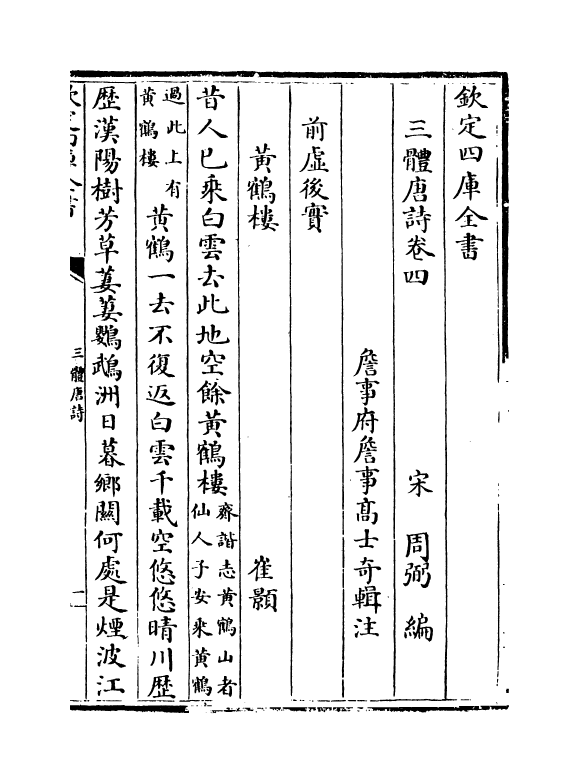 欽定四庫全書
三體唐詩卷四
宋 周弼 編
詹事府詹事高士奇輯注
前虛後實
黃鶴樓 崔顥
昔人已乘白雲去此地空餘黃鶴樓
齊諧志黃鶴山者
仙人子安乘黃鶴
過此上有
黃鶴樓
黃鶴一去不復返白雲千載空悠悠晴川歷
歷漢陽樹芳草萋萋鸚鵡洲日暮鄉關何處是煙波江
三體唐詩
一